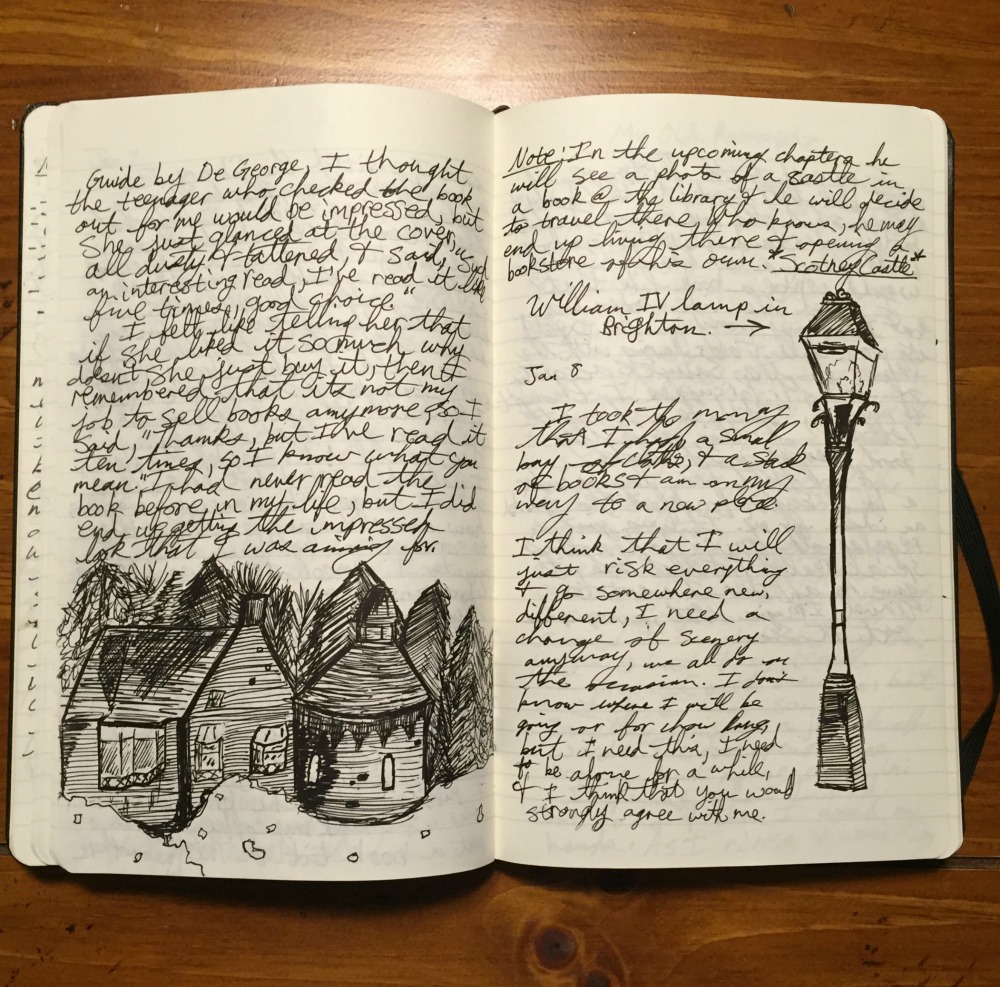 Guide by De George, I thought
the teenager who checked the book
out for me would be impressed, but
She just glanced at the cover,
all dusty & tattered, & said, "Such
an interesting read, I've read it like
five times, good choice."
I felt like telling her that
if she liked it so much why
doesn't she just buy it, then I
remembered that it's not my
job to sell books anymore so I
said, "Thanks, but I've read it
ten times, so I know what you
mean." I had never read the
book before in my life, but I did
end up getting the impressed
look that I was aiming for.
Note: In the upcoming chapters he
will see a photo of a castle in
a book @ the library & he will decide
to travel there. Who knows, he may
end up living there & opening a
bookstore of his own. *Scotney Castle*
William IV lamp in
Brighton. →
Jan 8
I took the money
that I had, a small
bag of clothes, & a stack
of books & am on my
way to a new place.
I think that I will
just risk everything
& go somewhere new,
different, I need a
change of scenery
anyway, we all do on
the occasion. I don't
know where I will be
going or for how long,
but I need this, I need
to be alone for a while,
& I think that you would
strongly agree with me.